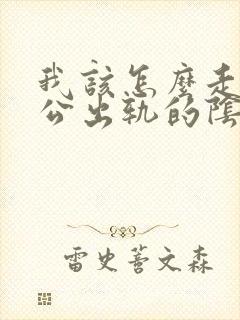 我该怎麼走
公出轨的陰
雷史蓍文森